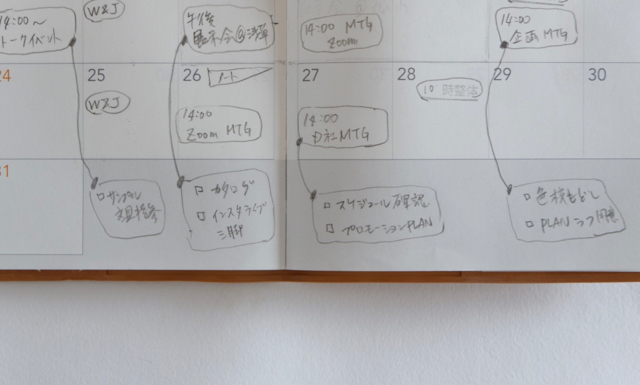 14:00〜
トークイベント
W&J
午後
展示会@浅草
14:00 MTG
Zoom
14:00
企画 MTG
24
25
W&J
26
ノート
14:00
Zoom MTG
27
14:00
MTG
28
10時整体
29
30
31
□サンプル
□カタログ
□インスタライブ
三脚
□スケジュール確認
□プロモーションPLAN
□色校もどし
□PLAN ラフ用意